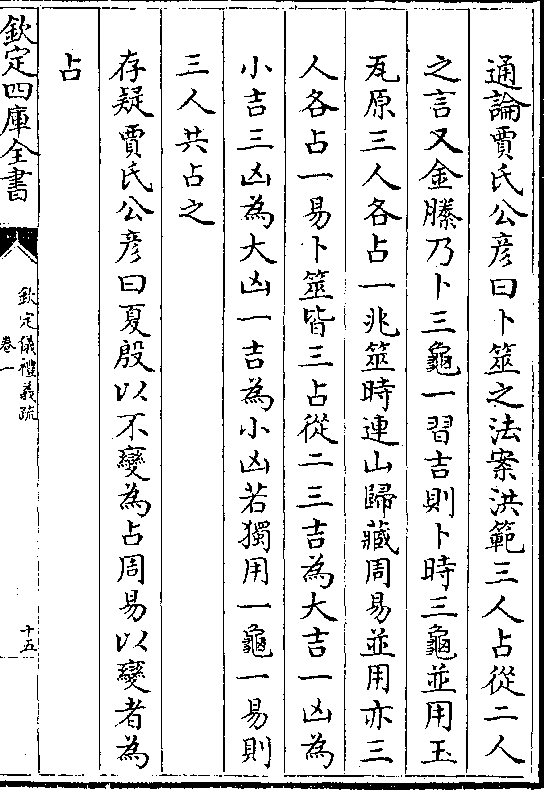 通論賈氏公彥曰卜筮之法案洪範三人占從二人
之言又金縢乃卜三龜一習吉則卜時三龜並用玉
瓦原三人各占一兆筮時連山歸藏周易並用亦三
人各占一易卜筮皆三占從二三吉為大吉一凶為
小吉三凶為大凶一吉為小凶若獨用一龜一易則
三人共占之
存疑賈氏公彥曰夏殷以不變為占周易以變者為
占
欽定四庫全書
欽定儀禮義疏
卷一
十五